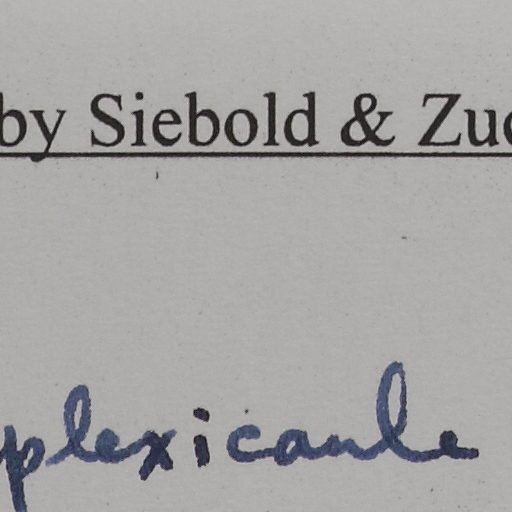 by Siebold & Zuc
plexicaule